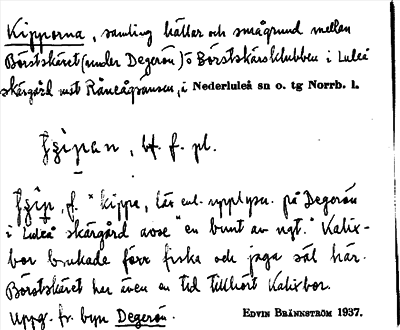 Kipporna, samling hällar och smågrund mellan
Börstskäret (under Degerön) o Börstskärsklubben i Luleå
skärgård mot Råneågränsen, i Nederluleå sn o. tg Norrb. l.
bf. f. pl.
f. "kippa, lär enl. upplysn. på Degerön
i Luleå skärgård avse "en bunt av ngt." Kalix-
bor brukade förr fiska och jaga säl här.
Börstskäret har även en tid tillhört Kalixbor.
Uppg. fr. byn Degerön. Edvin Brännström 1937.